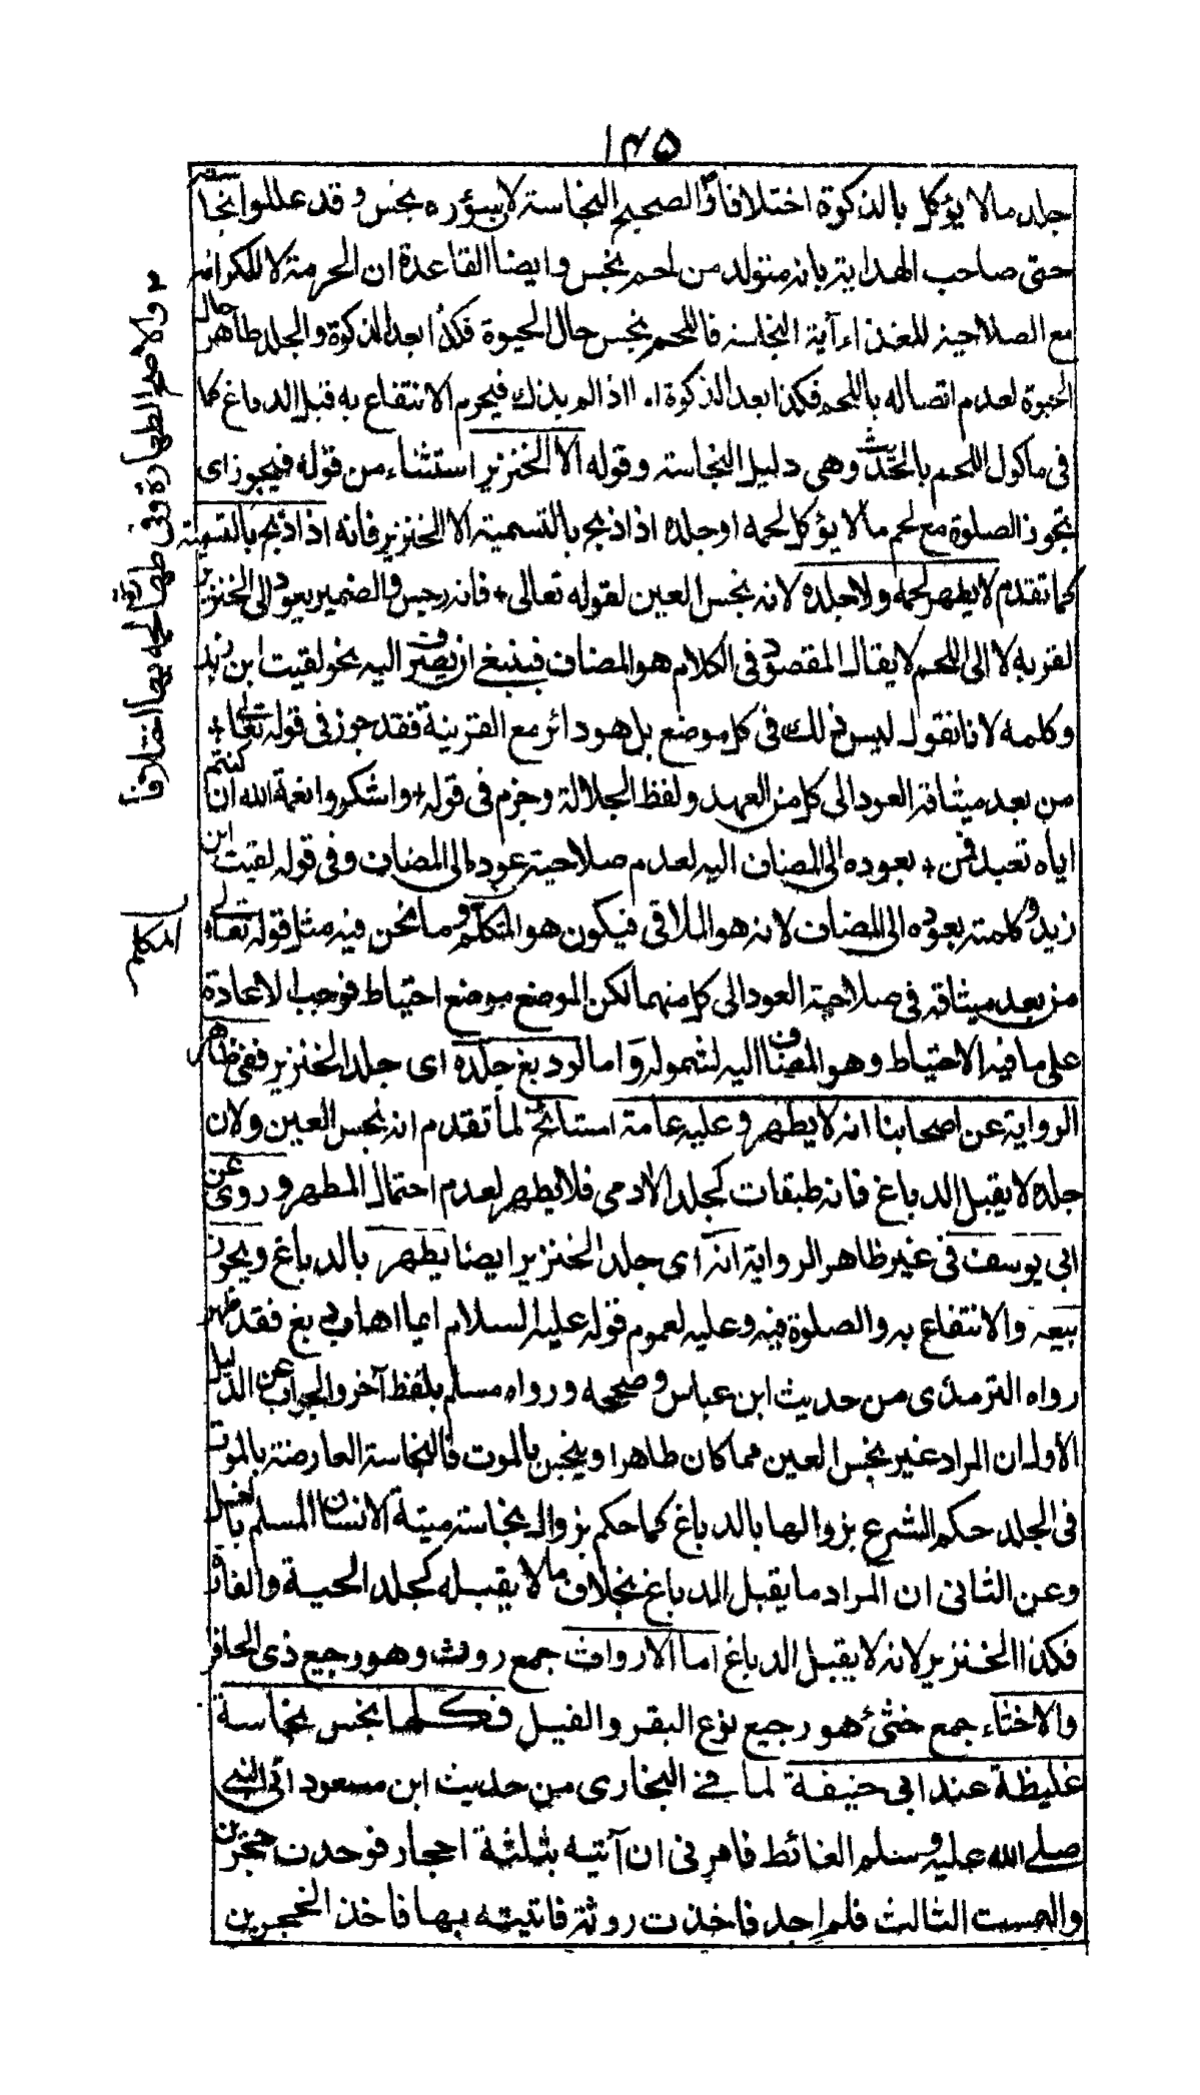 ١٤٥
جلد مالا يؤكل بالذكوة اختلافا والصحيح النجاسة لان سؤره نجس وقد عللوا نجاسته
حتى صاحب الهداية بانه متولد من لحم نجس وايضا القاعدة ان الحرمة لا للكرامة
مع الصلاحية للغذاء آية النجاسة فاللحم نجس حال الحيوة فكذا بعد الذكوة والجلد طاهر حال
الحيوة لعدم اتصاله باللحم فكذا بعد الذكوة اما اذا لم يذك فيحرم الانتفاع به قبل الدباغ كما
فى ماكول اللحم بالحديث وهى دليل النجاسة وقوله الا الخنزير استثناء من قوله فيجوز اى
تجوز الصلوة مع لحم مالا يؤكل لحمه او جلده اذا ذبح بالتسمية الا الخنزير فانه اذا ذبح بالتسمية
كما تقدم لا يطهر لحمه ولا جلده لانه نجس العين لقوله تعالى + فانه رجس والضمير يعود الى الخنزير
لقربه لا الى اللحم لا يقال المقصود فى الكلام هو المضاف فينبغى ان يصرف اليه نحو لقيت ابن زيد
وكلمه لانا نقول ليس ذلك فى كل موضع بل هو دائر مع القرينة فقد جوز فى قوله تعالى +
من بعد ميثاقه العود الى كل من العهد ولفظ الجلالة وجزم فى قوله + واشكروا نعمة الله ان كنتم
اياه تعبدون + بعوده الى المضاف اليه لعدم صلاحية عوده الى المضاف وفى قوله لقيت ابن
زيد وكلمته بعوده الى المضاف لانه هو الملاقى فيكون هو المتكلم وما نحن فيه مثل قوله تعالى
من بعد ميثاقه فى صلاحية العود الى كل منهما لكن الموضع موضع احتياط فوجب الاعادة
على ما فيه الاحتياط وهو المضاف اليه لشموله واما لو دبغ جلده اى جلد الخنزير ففى ظاهر
الرواية عن اصحابنا انه لا يطهر وعليه عامة المشائخ لما تقدم انه نجس العين ولان
جلده لا يقبل الدباغ فانه طبقات كجلد الادمى فلا يطهر لعدم احتمال المطهر وروى عن
ابى يوسف فى غير ظاهر الرواية انه اى جلد الخنزير ايضا يطهر بالدباغ ويجوز
بيعه والانتفاع به والصلوة فيه وعليه لعموم قوله عليه السلام ايما اهاب دبغ فقد طهر
رواه الترمذى من حديث ابن عباس وصححه ورواه مسلم بلفظ آخر والجواب عن الدليل
الأول ان المراد غير نجس العين مما كان طاهرا وينجس بالموت فالنجاسة العارضة بالموت
فى الجلد حكم الشرع بزوالها بالدباغ كما حكم بزوال نجاسة ميتة الانسان المسلم بالغسل
وعن الثانى ان المراد ما يقبل الدباغ بخلاف ما لا يقبله كجلد الحية والفارة
فكذا الخنزير لانه لا يقبل الدباغ اما الارواث جمع روث وهو رجيع ذى الحافر
والاخثاء جمع خثى هو رجيع نوع البقر والفيل فكلها نجس نجاسة
غليظة عند ابى حنيفة لما فى البخارى من حديث ابن مسعود اتى النبى
صلى الله عليه وسلم الغائط فامرنى ان آتيه بثلثة احجار فوجدت حجرين
والتمست الثالث فلم اجد فاخذت روثة فاتيته بها فاخذ الحجرين
٢ والاصح الطهارة وفى طهارة لحمه بها اختلافا
المتكلم